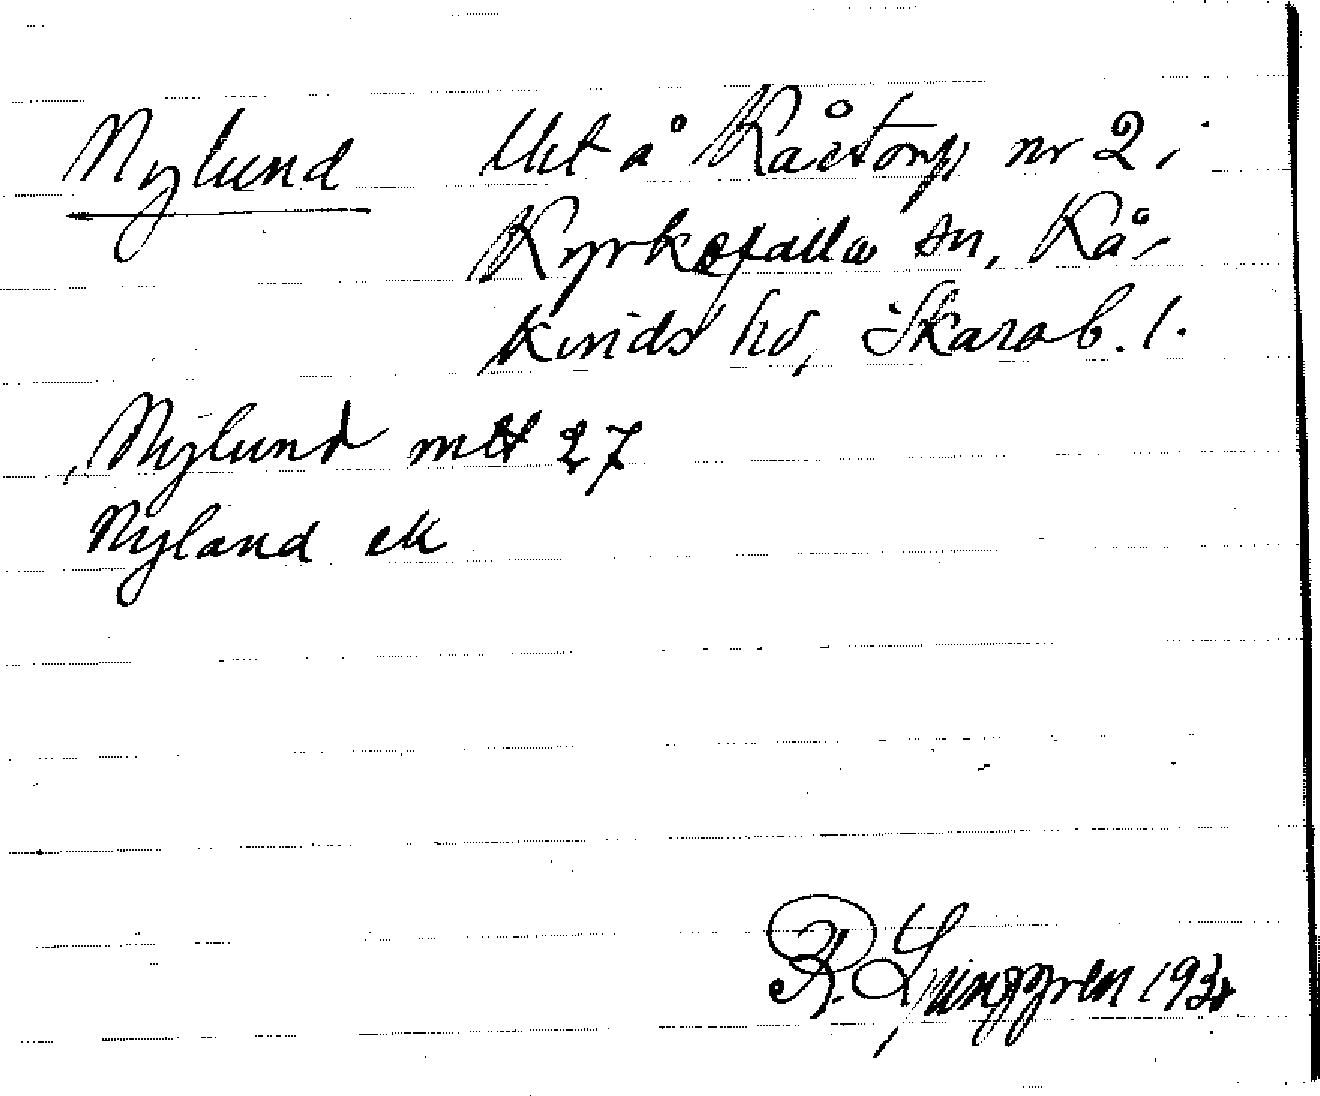 Nylund Ukt å Råstorp nr 2 i
Kyrkefalla sn, Kå-
kinds hd, Skarab. l.
Nylund mtt 27
Nyland ek
R. Ljunggren